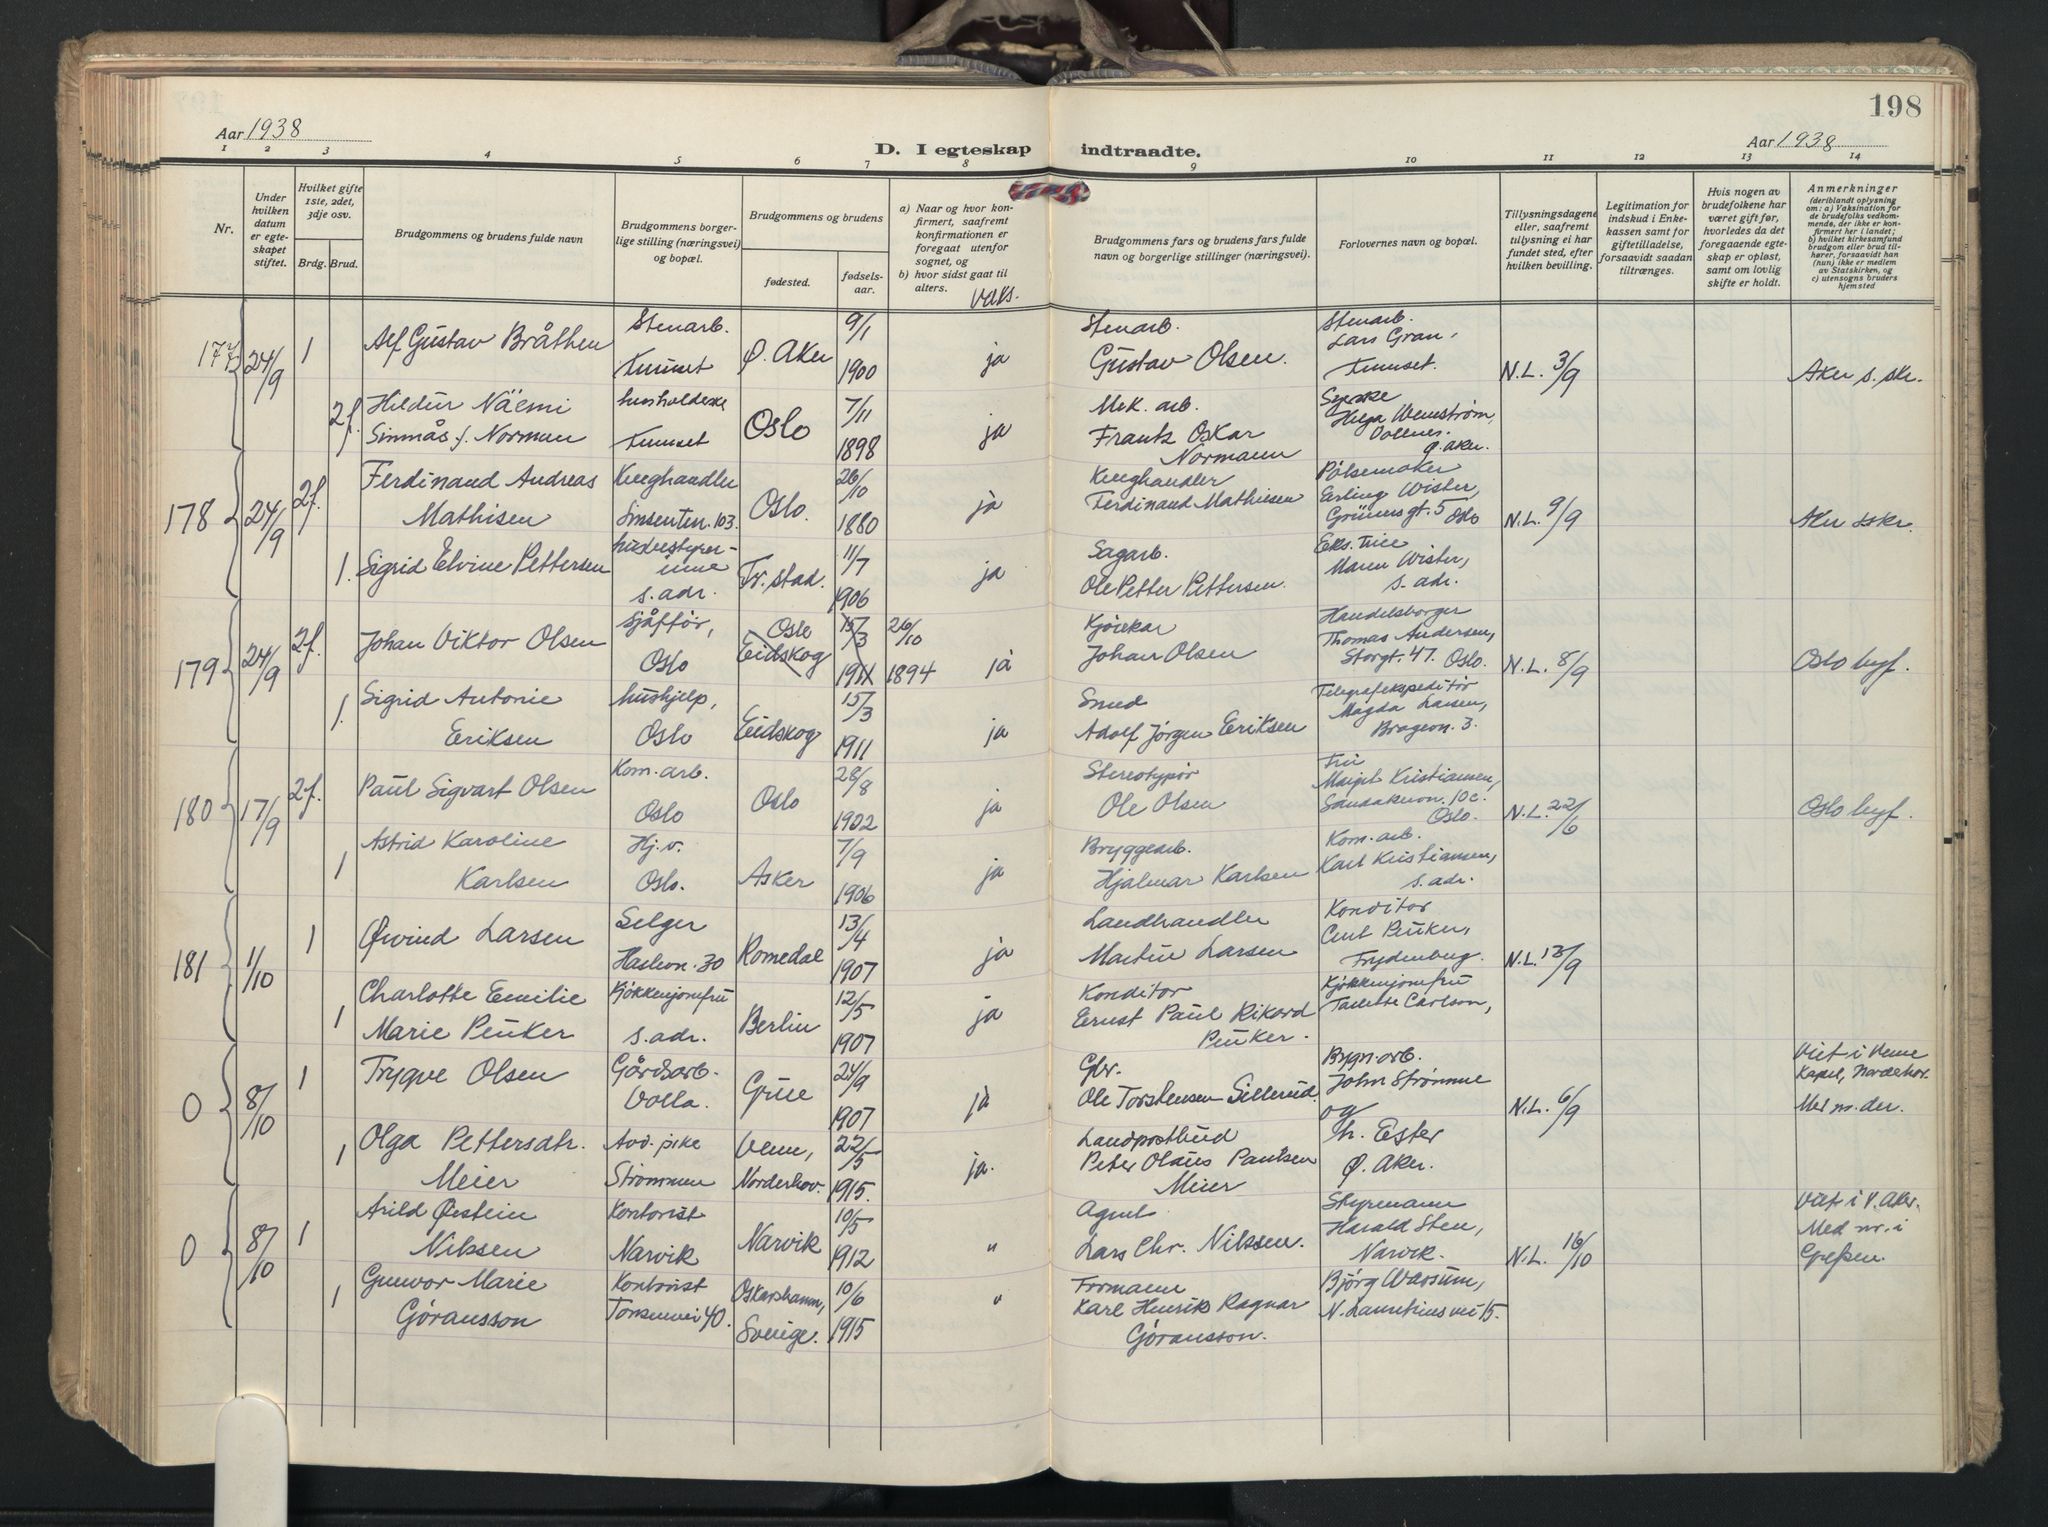 198
Aar 1938
D. I egteskap indtraadte.
Aar 1938
1 2 3 4 5 6 7 8 9 10 11 12 13 14
Nr.
Under hvilken datum er egteskapet stiftet.
Hvilket gifte 1ste, 2det, 3dje osv.
Brdg. Brud.
Brudgommens og brudens fulde navn
Brudgommens borgerlige stilling (næringsvei) og bopæl.
Brudgommens og brudens
fødested.
fødselsaar.
a) Naar og hvor konfirmert, saafremt konfirmationen er foregaat utenfor sognet, og
b) hvor sidst gaat til alters.
Vaks.
Brudgommens fars og brudens fars fulde navn og borgerlige stillinger (næringsvei).
Forlovernes navn og bopæl.
Tillysningsdagene eller, saafremt tillysning ei har fundet sted, efter hvilken bevilling.
Legitimation for indskud i Enkekassen samt for giftetilladelse, forsaavidt saadan tiltrænges.
Hvis nogen av brudefolkene har været gift før, hvorledes da det foregaaende egteskap er opløst, samt om lovlig skifte er holdt.
Anmerkninger
(deriblandt oplysning om: a) Vaksination for de brudefolks vedkommende, der ikke er konfirmert her i landet; b) hvilket kirkesamfund brudgom eller brud tilhører, forsaavidt han (hun) ikke er medlem av Statskirken, og c) utensogns bruders hjemsted
177 24/9 1 Alf Gustav Bråthen Stenarb. Ø. Aker 9/1 1900 ja Stenarb. Gustav Olsen. Stenarb. Lars Gran, N.L. 3/9 Aker s. skr.
2f. Hildur Näemi Sinmås f. Norman Oslo 7/11 1898 ja Mek. arb. Frantz Oskar Normann Helga Ø. Aker.
178 24/9 2f. Ferdinand Andreas Mathisen Sinsenten. 103. Oslo. 26/10 1880 ja Ferdinand Mathiesen Pølsemaker Erling Wister, Grünersgt. 5 Oslo N.L. 9/9 Aker sskr.
1. Sigrid Elvine Pettersen s. adr. Fr.stad. 11/7 1906 ja Sagarb. Ole Petter Pettersen. Maren Wister, s. adr.
179 24/9 2f. Johan Viktor Olsen Sjåfför, Oslo Oslo Eidskog 15/3 1911 26/10 1894 ja Kjørekar Johan Olsen Handelsborger Thomas Andersen, Storgt. 47. Oslo. N.L. 8/9 Oslo byf.
1. Sigrid Antonie Eriksen hushjelp, Oslo Eidskog 15/3 1911 ja Smed Adolf Jørgen Eriksen Telegrafekspeditør Magda Larsen, Bragevn. 3.
180 17/9 2f. Paul Sigvart Olsen Kom. arb. Oslo Oslo 28/8 1902 ja Stereotypør Ole Olsen Fru Margit Kristiansen, Sandakervn. 10c. Oslo. N.L. 22/6 Oslo byf.
1 Astrid Karoline Karlsen Hj. v. Oslo. Asker 7/9 1906 ja Bryggearb. Hjalmar Karlsen Kom. arb. Karl Kristiansen, s. adr.
181 1/10 1 Øivind Larsen Selger Haslevn. 30 Romedal 13/4 1907 ja Landhandler Martin Larsen Konditor Curt Peuker, Frydenberg. N.L. 13/9
1 Charlotte Emilie Marie Peuker Kjøkkenjomfru s. adr. Berlin 12/5 1907 ja Konditor Ernst Paul Rikard Peuker. Kjøkkenjomfru Carlson,
0 8/10 1 Trygve Olsen Gårdsarb. Volla. Grue 24/9 1907 ja Gbr. Ole Torstensen Sillerud. Bygn. arb. John Strømme og N.L. 6/9 Viet i Veme Kapel, Norderhov. Med nr. der.
1 Olga Pettersdtr. Meier Avd. pike Strømmen Veme, Norderhov. 22/5 1915. ja. Landpostbud Peter Olaus Paulsen Meier h. Ester Ø. Aker.
0 8/10 1 Arild Øistein Nilssen Kontorist Narvik Narvik 10/5 1912 " Agent Lars Chr. Nilssen. Styrmann Harald Sten, Narvik. N.L. 16/10 Viet i V. Aker. Med nr. i Grefsen.
1 Gunvor Marie Göransson Kontorist Tonsenvei 40. Oskarshamn, Sverige. 10/6 1915 " Formann Karl Henrik Ragnar Göransson. Bjørg Warsum, N. Lauritius vei 15.